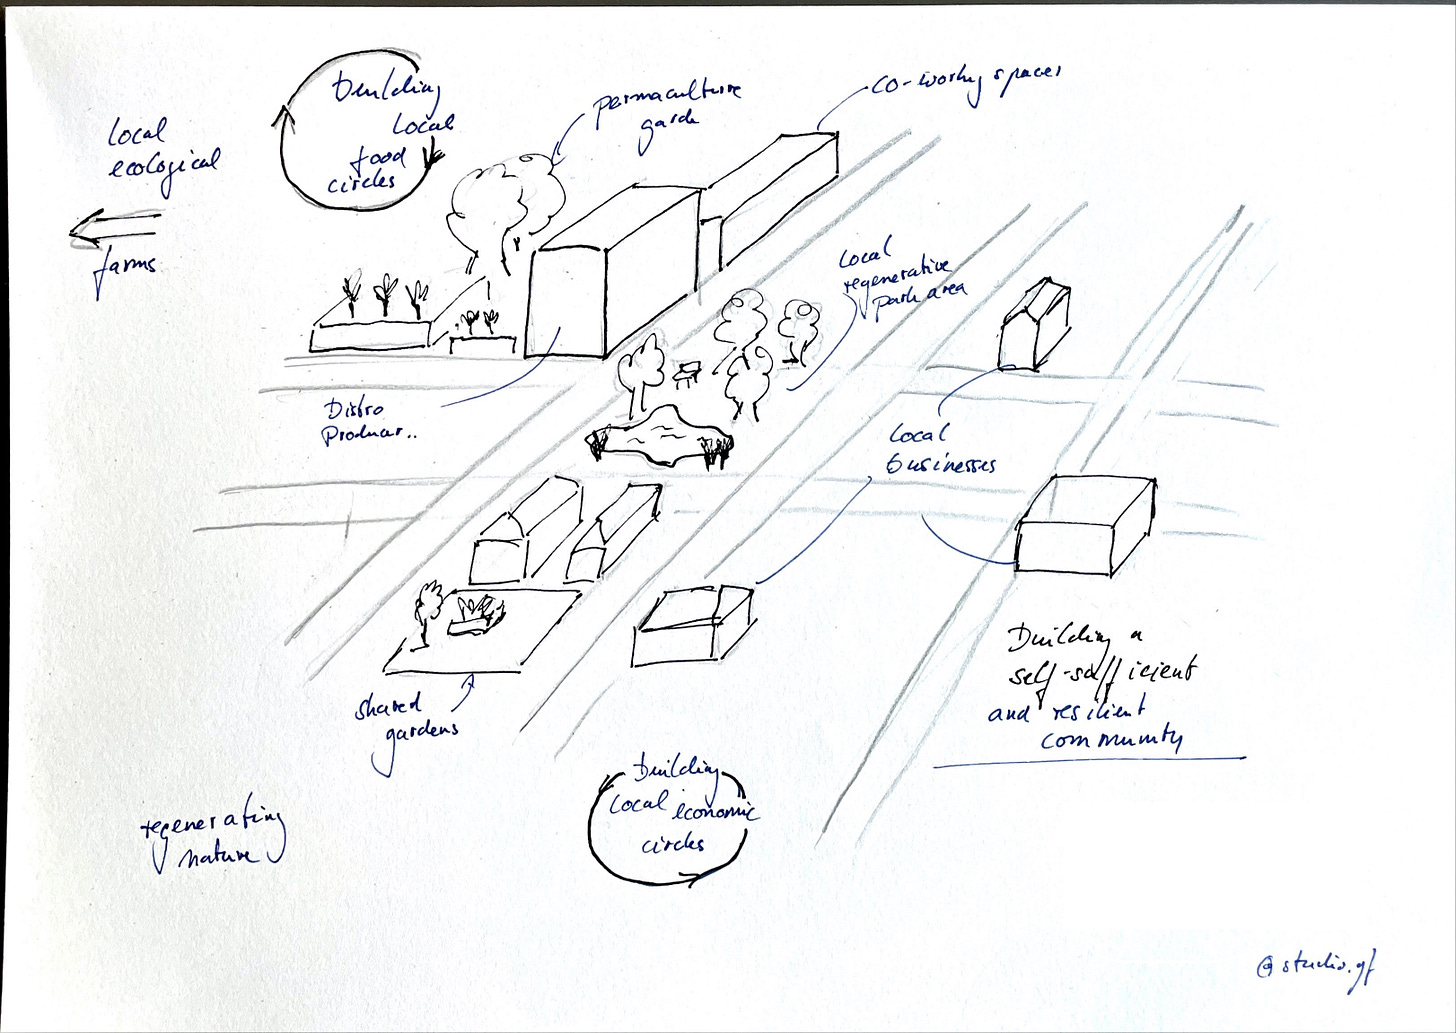 building
local
food
circles
local
ecological
farms
permaculture
co-working spaces
local
regenerative
park area
Distro
local
businesses
shared
gardens
Building a
self-sufficient
and resilient
community
Building
local economic
circles
regenerating
nature
@studio.gf